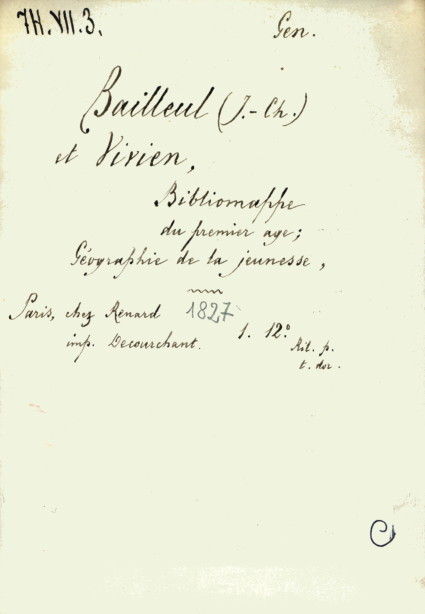 7H.VII.3.
Gen.
Bailleul (J.-Ch.)
et Vivien,
Bibliomappe
du premier age;
Géographie de la jeunesse,
Paris, chez Renard 1827
imp. Decourchant. 1. 12°
Rel. p.
t. dor.
C